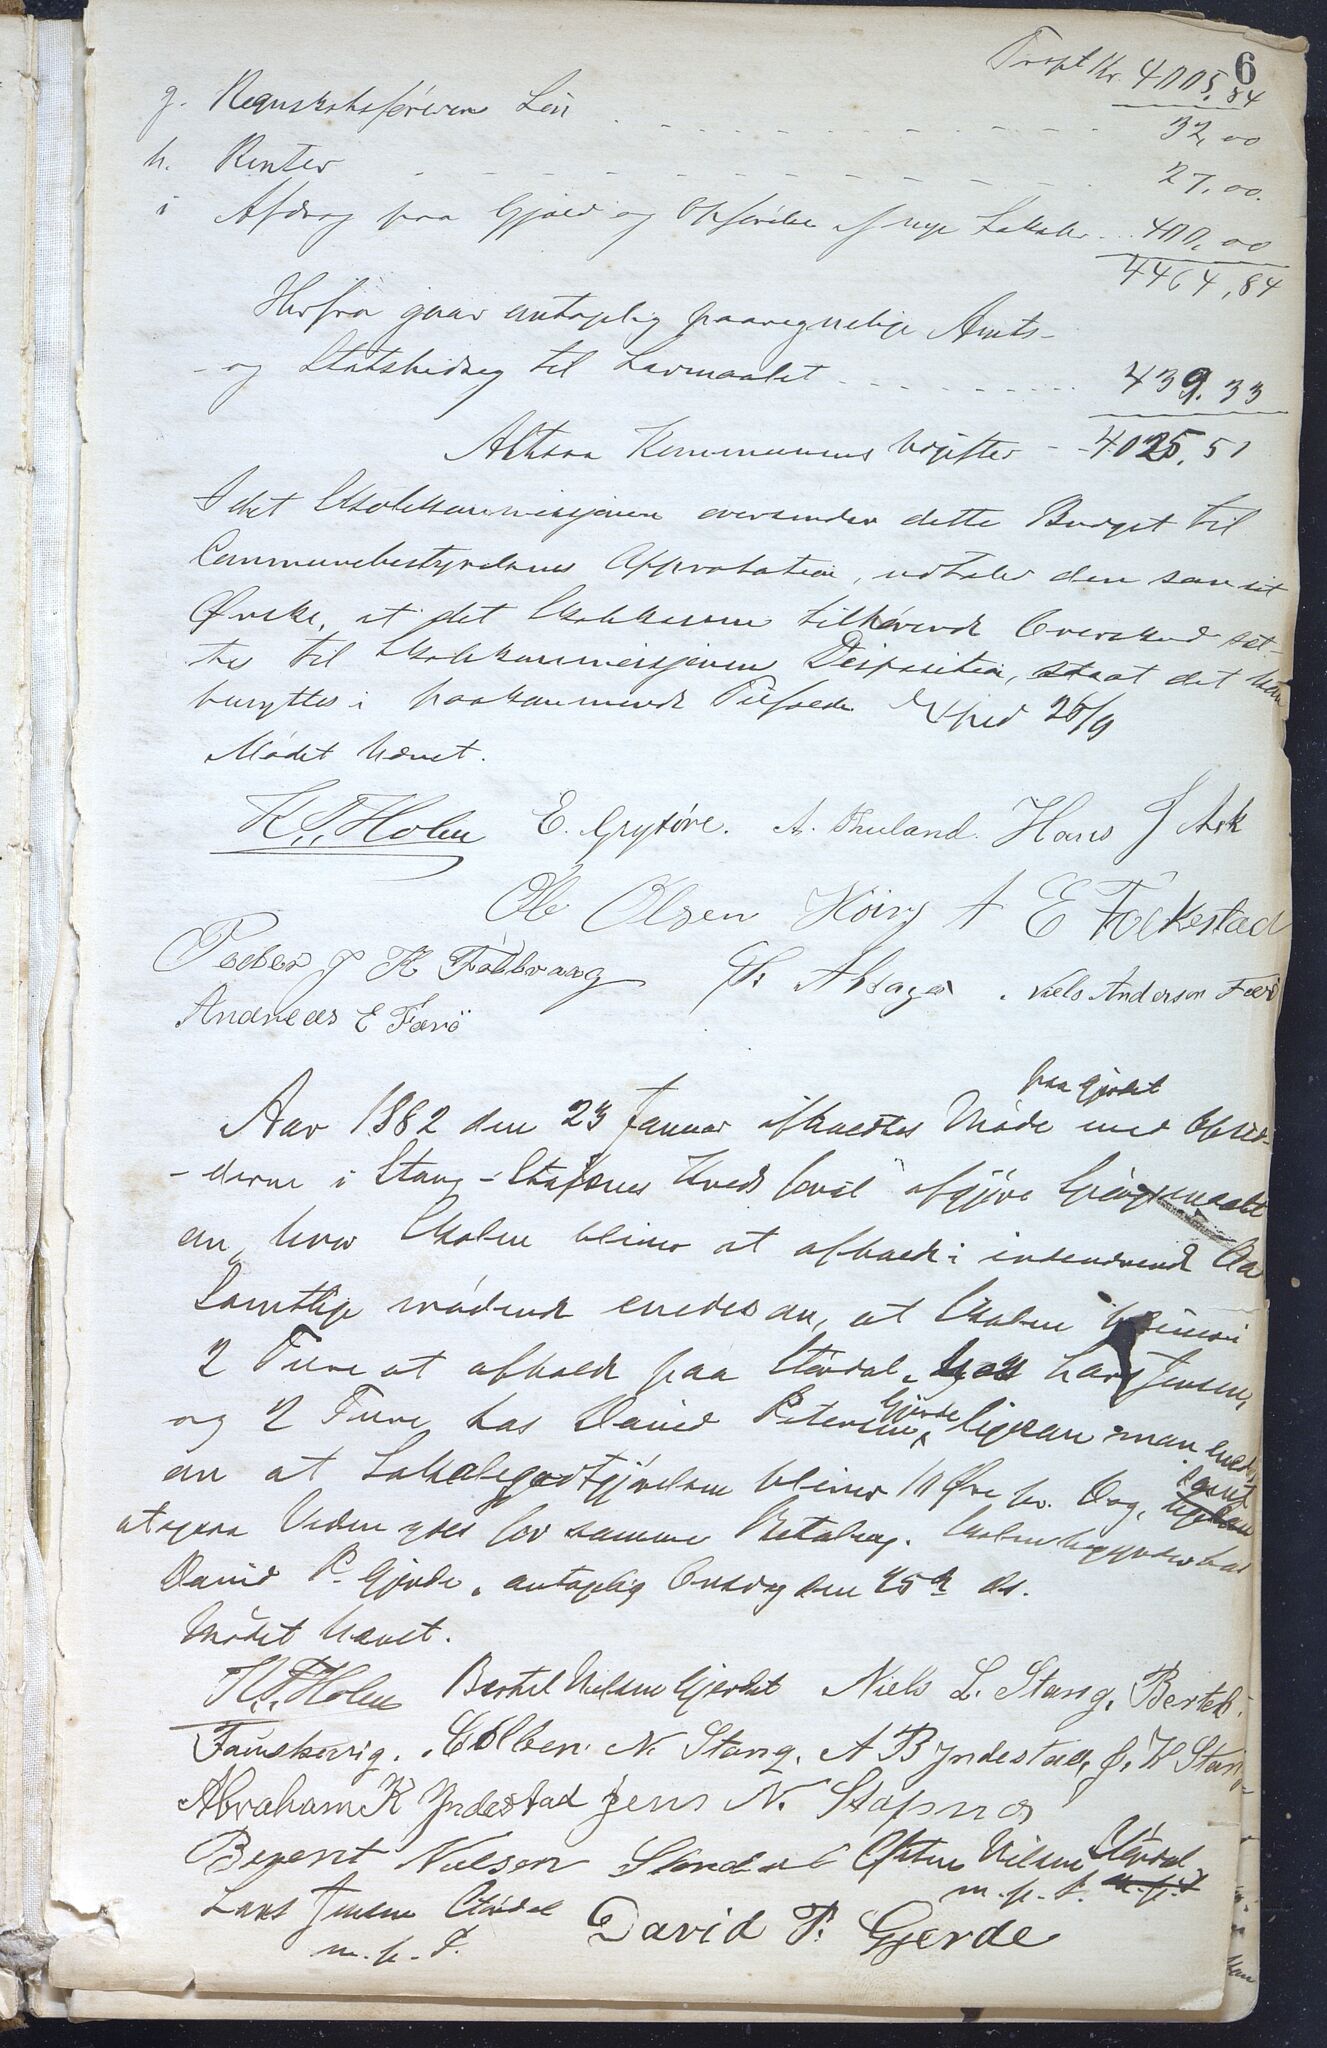 6
Trspt Kr. 4005,84
g. Regnskabsførerens Løn 32,00
h. Renter 27,00.
i Afdrag paa Gjæld og Opførelse af nye Lokaler 400,00
4464,84
Herfra gaar antagelig paaregnelige Amts-
- og Statsbidrag til Lavmaalet 439.33
Altsaa Kommunens Udgifter - 4025,51
Idet Skolekommissjonen oversender dette Budget til
Communebestyrelsens Approbation, udtaler den som sit
Ønske, at det Skolekassen tilhørende Overskud sæt-
tes til Skolekommissjonens Disposition, saaat det kan
benyttes i paakommende Tilfælde. Exped 26/9
Mødet hævet.
K. J. Holm E. Grytøre. A. Thuland. Hans J Ask
Ole Olsen Höivg A E Folkestad
Peder J K Tobbvang Th. Alsager. Niels Anderson Færø
Andreas E Færö
paa Gjerdet
Aar 1882 den 23 Januar afholdtes Møde med Opsid-
-derne i Stang-Stafsnes Kreds forat afgjøre Spørgsmaalet
om, hvor Skolen bliver at afholde i indeværende Aar
Samtlige mødende enedes om, at Skolen bliver i
2 Ture at afholde paa Størdal, hos Lars Jensen,
og 2 Ture hos David Petersen Gjerde, ligesom man enedes
om at Lokalegodtgjørelsen bliver 10 Øre pr. Dag, samt
at ogsaa Veden ydes for samme Betaling. Skolen begynder hos
David P. Gjerde, antagelig Onsdag den 25de ds.
Mødet hævet.
K. J. Holm Bertel Nilsen Gjerdet Niels L. Stang, Bertel
Famskevig. Colben N. Stang, A B Yndestad, J. H Stang
Abraham K Yndestad Jens N. Stafsnes
Berent Nielsen Stordal Østen Nilsen Størdal
m. p. P.
Lars Jensen Størdal David P. Gjerde
m. p. P.